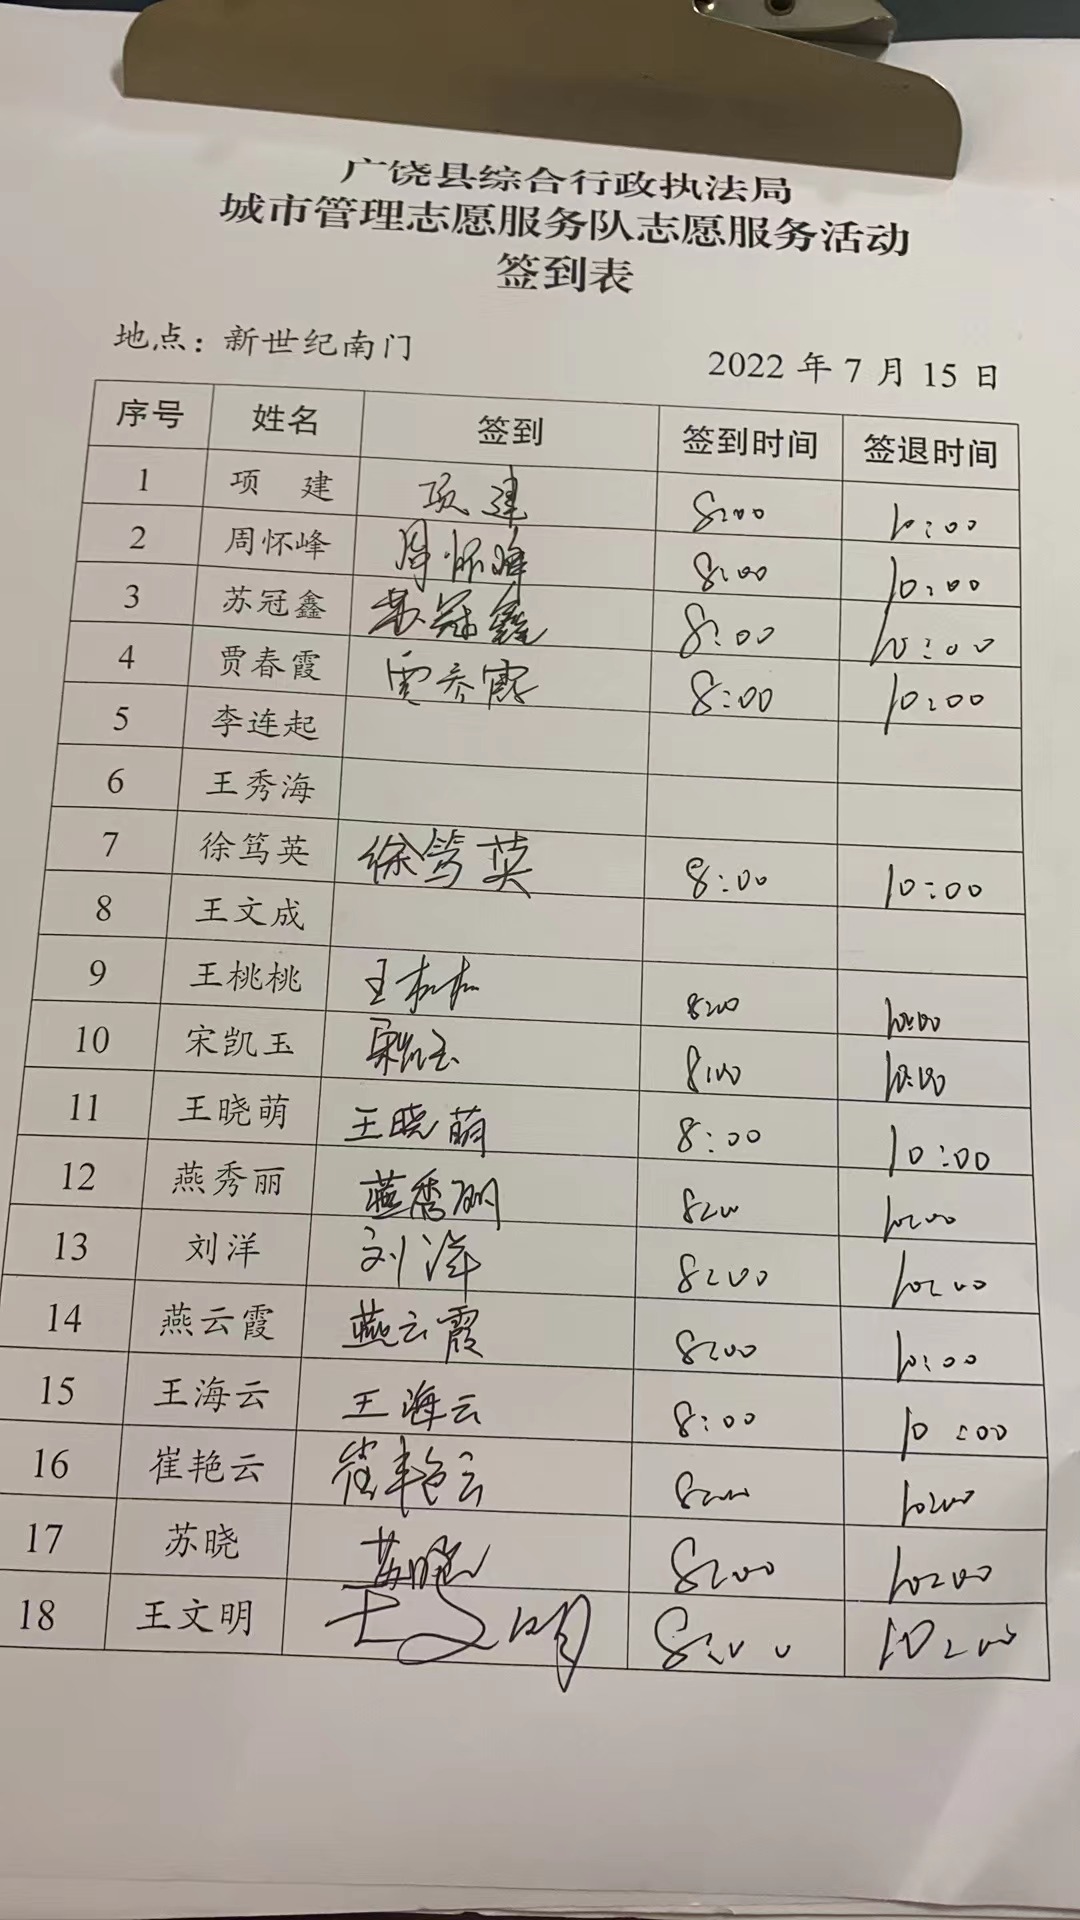 广饶县综合行政执法局
城市管理志愿服务队志愿服务活动
签到表
地点：新世纪南门 2022 年 7 月 15 日
序号 姓名 签到 签到时间 签退时间
1 项 建 项建 8:00 10:00
2 周怀峰 周怀峰 8:00 10:00
3 苏冠鑫 苏冠鑫 8:00 10:00
4 贾春霞 贾春霞 8:00 10:00
5 李连起
6 王秀海
7 徐笃英 徐笃英 8:00 10:00
8 王文成
9 王桃桃 王桃桃 8:00 10:00
10 宋凯玉 宋凯玉 8:00 10:00
11 王晓萌 王晓萌 8:00 10:00
12 燕秀丽 燕秀丽 8:00 10:00
13 刘洋 刘洋 8:00 10:00
14 燕云霞 燕云霞 8:00 10:00
15 王海云 王海云 8:00 10:00
16 崔艳云 崔艳云 8:00 10:00
17 苏晓 苏晓 8:00 10:00
18 王文明 王文明 8:00 10:00